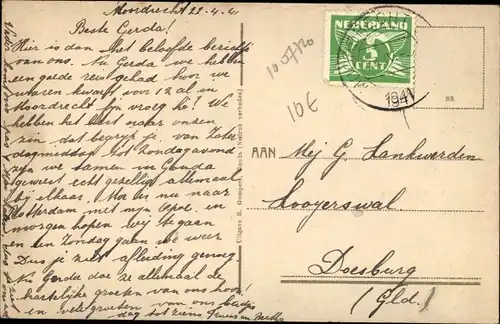 Moordrecht 22-4-41
Beste Gerda!
Hier is dan het beloofde berichtje
van ons. Nu Gerda we hebben
een goede reis gehad hoor we
waren kwart voor 12 al in
Moordrecht fijn vroeg hè! We
hebben het best naar onzen
zin dat begrijp je van Zater
dagmiddag tot Zondagavond
zijn we samen in Gouda
geweest echt gezellig allemaal
bij elkaar. Nu is naar
Rotterdam met mijn Opoe en
morgen hopen wij te gaan
en en Zondag gaan we weer
Dus je ziet afleiding genoeg
Nu Gerda doe ze allemaal de
hartelijke groeten van ons hoor
en vele groeten van ons
dag tot ziens Truus en
Uitgave R. Gompert,
(Nadruk verboden)
10 07/20
10 E
NEDERLAND
5
CENT
1941
88
AAN
Mej G. Lankwerden
Looyerswal
Doesburg
(Gld.)